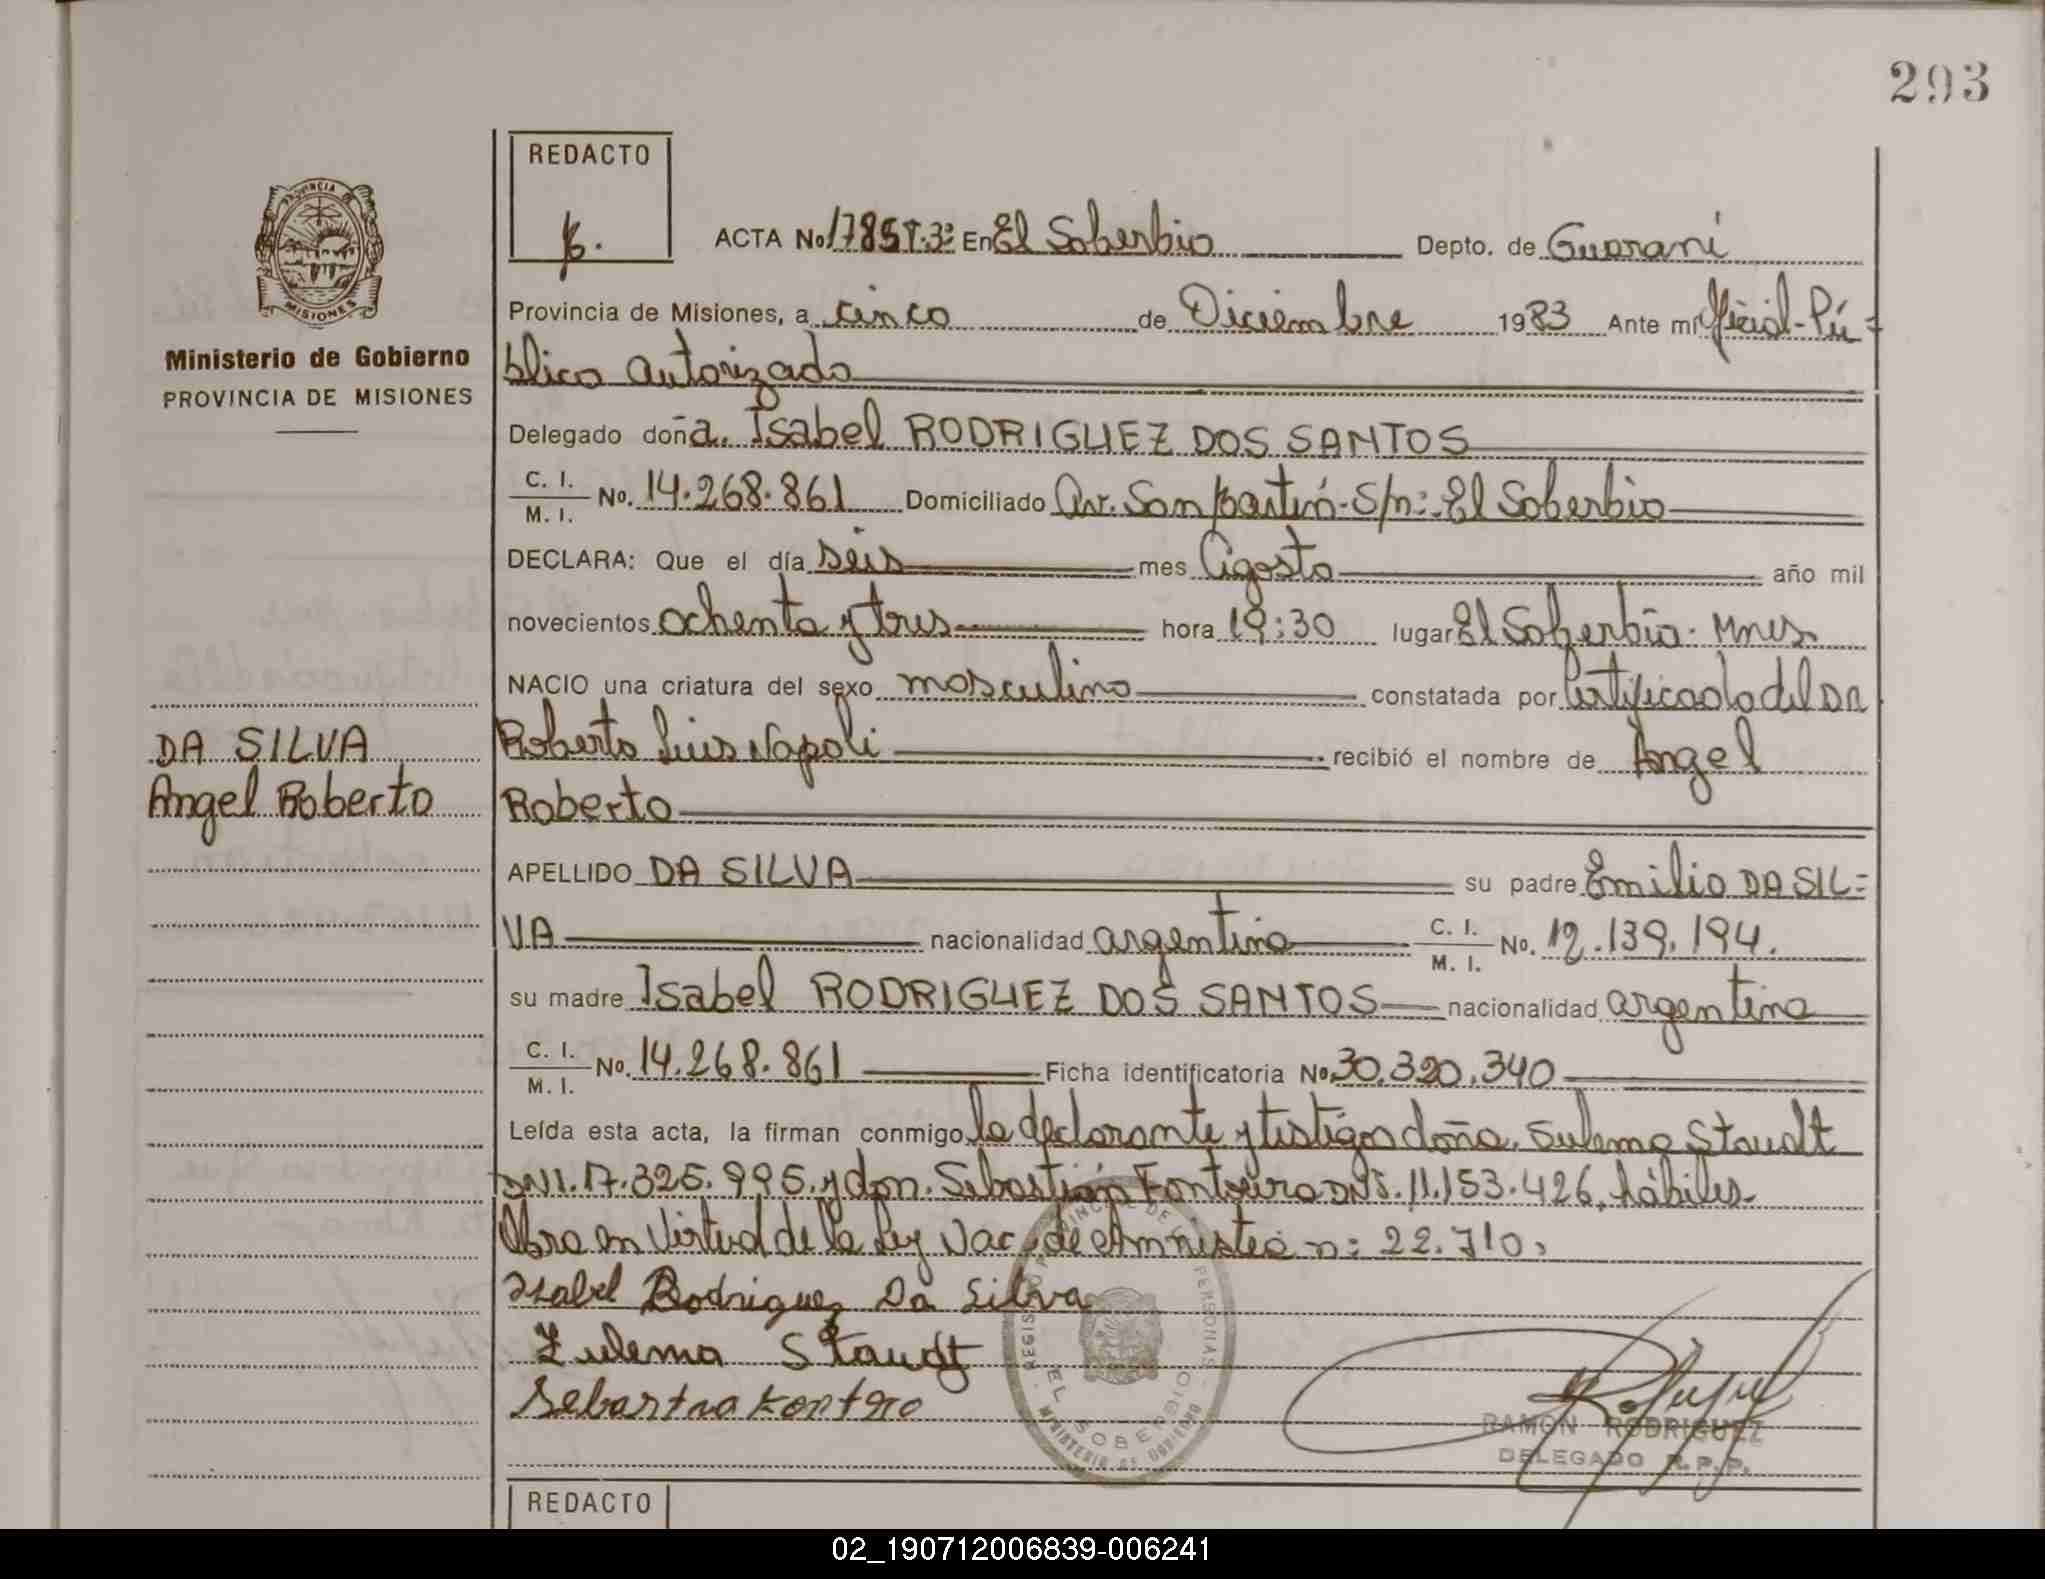 293
REDACTO
ACTA No 1785 T.3º En El Soberbio Depto. de Guarani
PROVINCIA
MISIONES
Provincia de Misiones, a cinco de Diciembre 1983 Ante mi Oficial-Pú-
Ministerio de Gobierno
PROVINCIA DE MISIONES
blico autorizado
Delegado doña. Isabel RODRIGUEZ DOS SANTOS
C. I.
M. I. No. 14.268.861 Domiciliado Av. San Martín-S/n: El Soberbio
DECLARA: Que el día seis mes Agosto año mil
novecientos ochenta y tres hora 19:30 lugar El Soberbio. Mnes.
NACIO una criatura del sexo masculino constatada por Certificado del DR
DA SILVA
Angel Roberto
Roberto Luis Napoli recibió el nombre de Angel
Roberto
APELLIDO DA SILVA su padre Emilio DA SIL=
VA nacionalidad argentina C. I.
M. I. No. 12.139.194.
su madre Isabel RODRIGUEZ DOS SANTOS nacionalidad argentina
C. I.
M. I. No. 14.268.861 Ficha identificatoria No 30.320.340
Leída esta acta, la firman conmigo la declarante y testigos doña. Sulema Staudt
DNI. 17.325.995. y don. Sebastián Fontoura DNI. 11.153.426, hábiles.
Obra en Virtud de la Ley Nac. de Amnistia n: 22.710.
Isabel Rodriguez Da Silva
Zulema Staudt
Sebastna Kontero
REGISTRO PROVINCIAL DE LAS PERSONAS
EL SOBERBIO
MINISTERIO DE GOBIERNO
RAMON RODRIGUEZ
DELEGADO R.P.P.
REDACTO
02_190712006839-006241